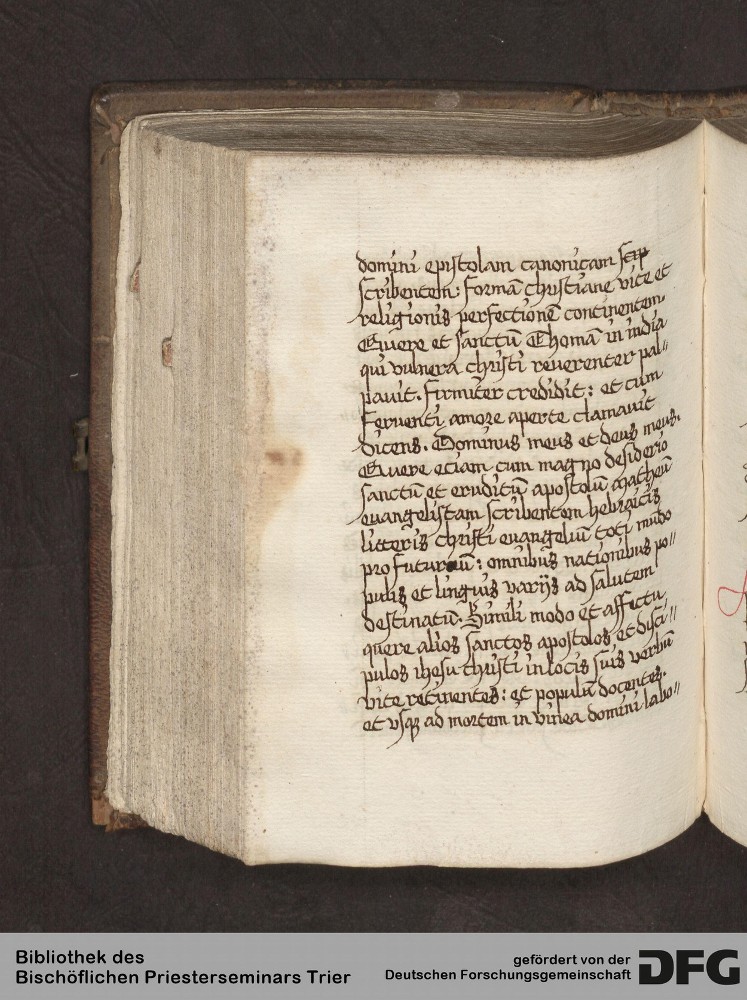 domini epistolam canonicam scrip
scribentem: formā christiane vite et
religionis perfectionē continentem.
Quere et sanctū Thomā in india
qui vulnera christi reuerenter pal〃
pauit. firmiter credidit: et cum
feruenti amore aperte clamauit
dicens. Dominus meus et deus meus.
Quere eciam cum magno desiderio
sanctū et eruditū apostolū Matheū
euangelistam scribentem hebraicis
litteris christi euangeliū toti mūdo
profuturū: omnibus nationibus po〃
pulis et linguis varijs ad salutem
destinatū. Simili modo et affectu
quere alios sanctos apostolos et disci〃
pulos ihesu christi in locis suis verbū
vite retinentes: et populū docentes.
et vsqꝫ ad mortem in vinea domini labo〃
Bibliothek des
Bischöflichen Priesterseminars Trier
gefördert von der
Deutschen Forschungsgemeinschaft
DFG